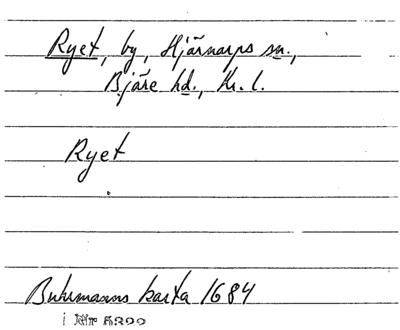 Ryet, by, Hjärnarps sn.,
Bjäre hd., Kr. l.
Ryet
Buhrmanns karta 1684
Nr 5322